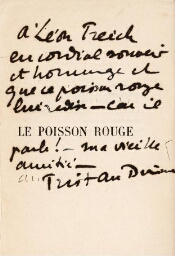 A Léon Treich
en cordial souvenir
et hommage et
que ce poisson rouge
lui redise — car il
LE POISSON ROUGE
parle! — ma vieille
amitié —
Tristan Derème